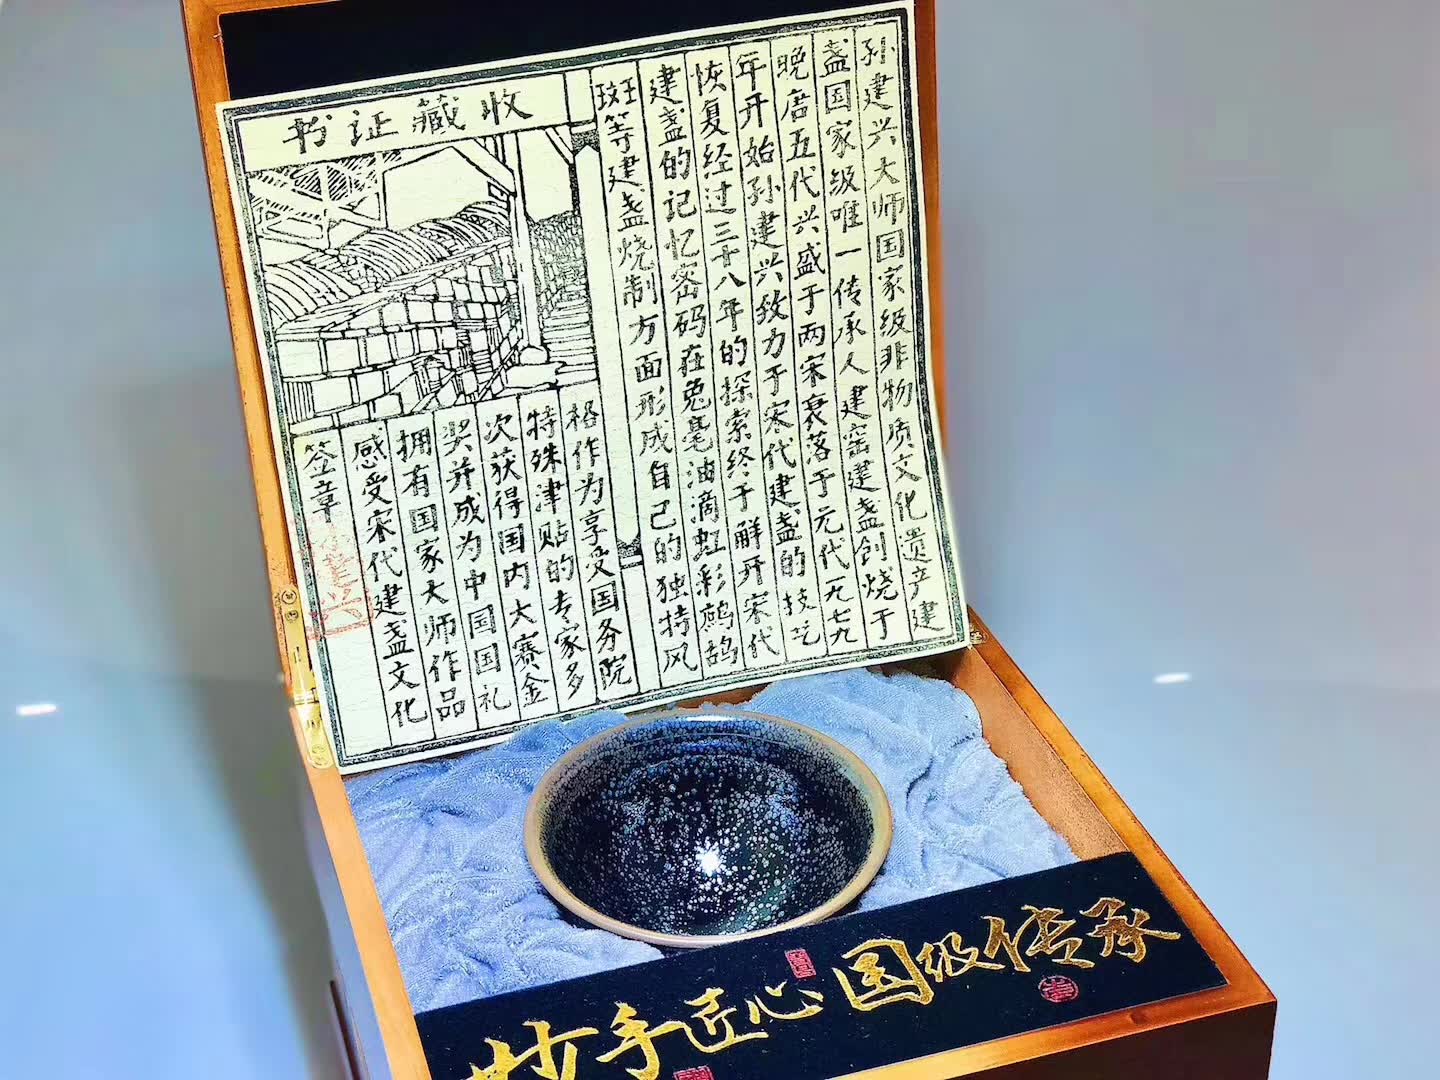 收藏证书
孙建兴大师国家级非物质文化遗产建
盏国家级唯一传承人建窑建盏创烧于
晚唐五代兴盛于两宋衰落于元代一九七九
年开始孙建兴致力于宋代建盏的技艺
恢复经过三十八年的探索终于解开宋代
建盏的记忆密码在兔毫油滴虹彩鹧鸪
斑等建盏烧制方面形成自己的独特风
格作为享受国务院
特殊津贴的专家多
次获得国内大赛金
奖并成为中国国礼
拥有国家大师作品
感受宋代建盏文化
签章
妙手匠心国级传承